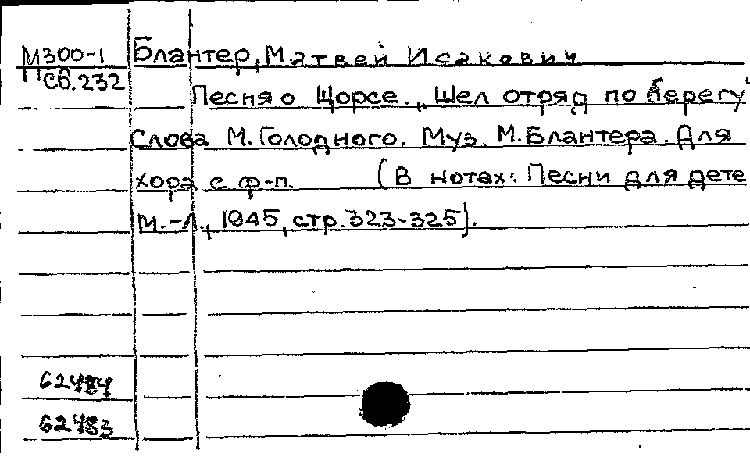 М300-1 Блантер, Матвей Исакович
Сб.232
Песня о Щорсе. „Шел отряд по берегу"
Слова М. Голодного. Муз. М. Блантера. Для
хора с ф-п. (В нотах: Песни для дете
М.-Л., 1945, стр. 323-325).
62484
62483